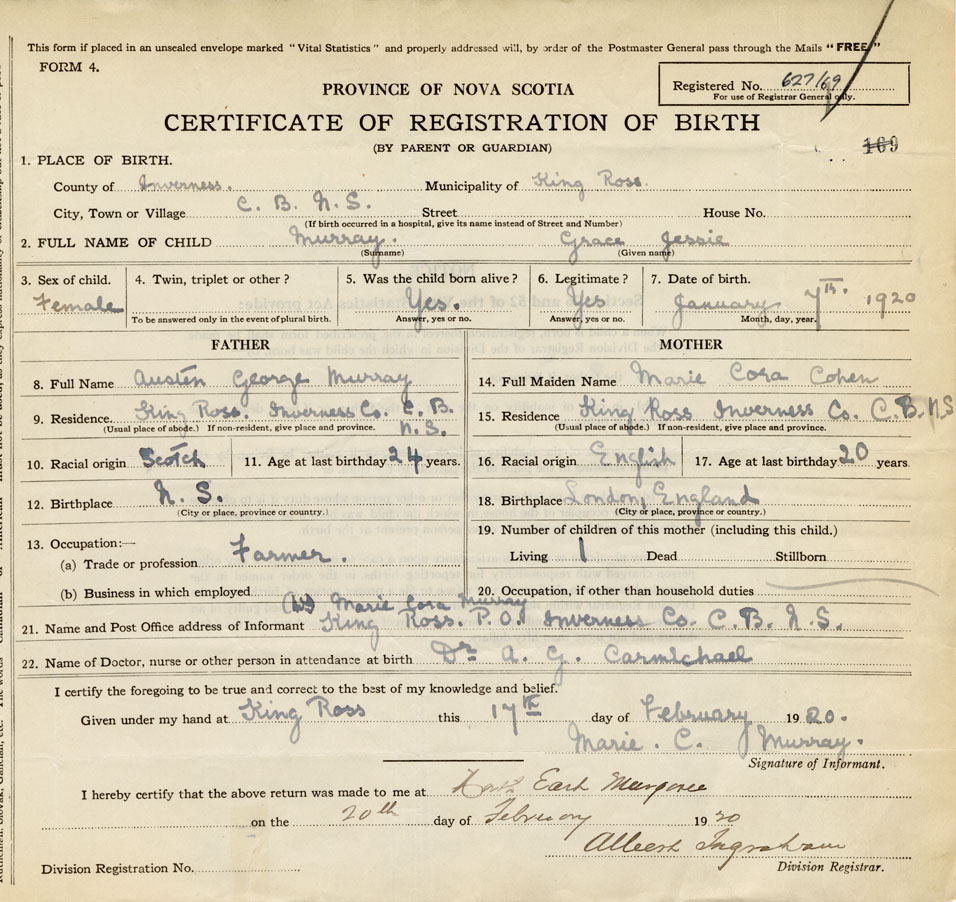 This form if placed in an unsealed envelope marked "Vital Statistics" and properly addressed will, by order of the Postmaster General pass through the Mails "FREE"
FORM 4.
Registered No. 627/69
For use of Registrar General only.
PROVINCE OF NOVA SCOTIA
CERTIFICATE OF REGISTRATION OF BIRTH
(BY PARENT OR GUARDIAN)
169
1. PLACE OF BIRTH.
County of Inverness. Municipality of King Ross.
City, Town or Village C. B. N. S. Street House No.
(If birth occurred in a hospital, give its name instead of Street and Number)
2. FULL NAME OF CHILD Murray. Grace Jessie
(Surname) (Given name)
3. Sex of child. 4. Twin, triplet or other? 5. Was the child born alive? 6. Legitimate? 7. Date of birth.
Female Yes. Yes January 7th. 1920
To be answered only in the event of plural birth. Answer, yes or no. Answer, yes or no. Month, day, year.
FATHER
8. Full Name Austen George Murray
9. Residence King Ross. Inverness Co. C. B. N. S.
(Usual place of abode.) If non-resident, give place and province.
10. Racial origin Scotch 11. Age at last birthday 24 years.
12. Birthplace N. S.
(City or place, province or country.)
13. Occupation:—
(a) Trade or profession Farmer.
(b) Business in which employed
MOTHER
14. Full Maiden Name Marie Cora Cohen
15. Residence King Ross Inverness Co. C. B. N S
(Usual place of abode.) If non-resident, give place and province.
16. Racial origin English 17. Age at last birthday 20 years.
18. Birthplace London, England
(City or place, province or country.)
19. Number of children of this mother (including this child.)
Living 1 Dead Stillborn
20. Occupation, if other than household duties
Marie Cora Murray
21. Name and Post Office address of Informant King Ross. P. O. Inverness Co. C. B. N. S.
22. Name of Doctor, nurse or other person in attendance at birth Dr A. G. Carmichael
I certify the foregoing to be true and correct to the best of my knowledge and belief.
Given under my hand at King Ross this 17th day of February 1920.
Marie. C. Murray.
Signature of Informant.
I hereby certify that the above return was made to me at North East Margaree
on the 20th day of February 1920
Albert Ingraham
Division Registration No. Division Registrar.